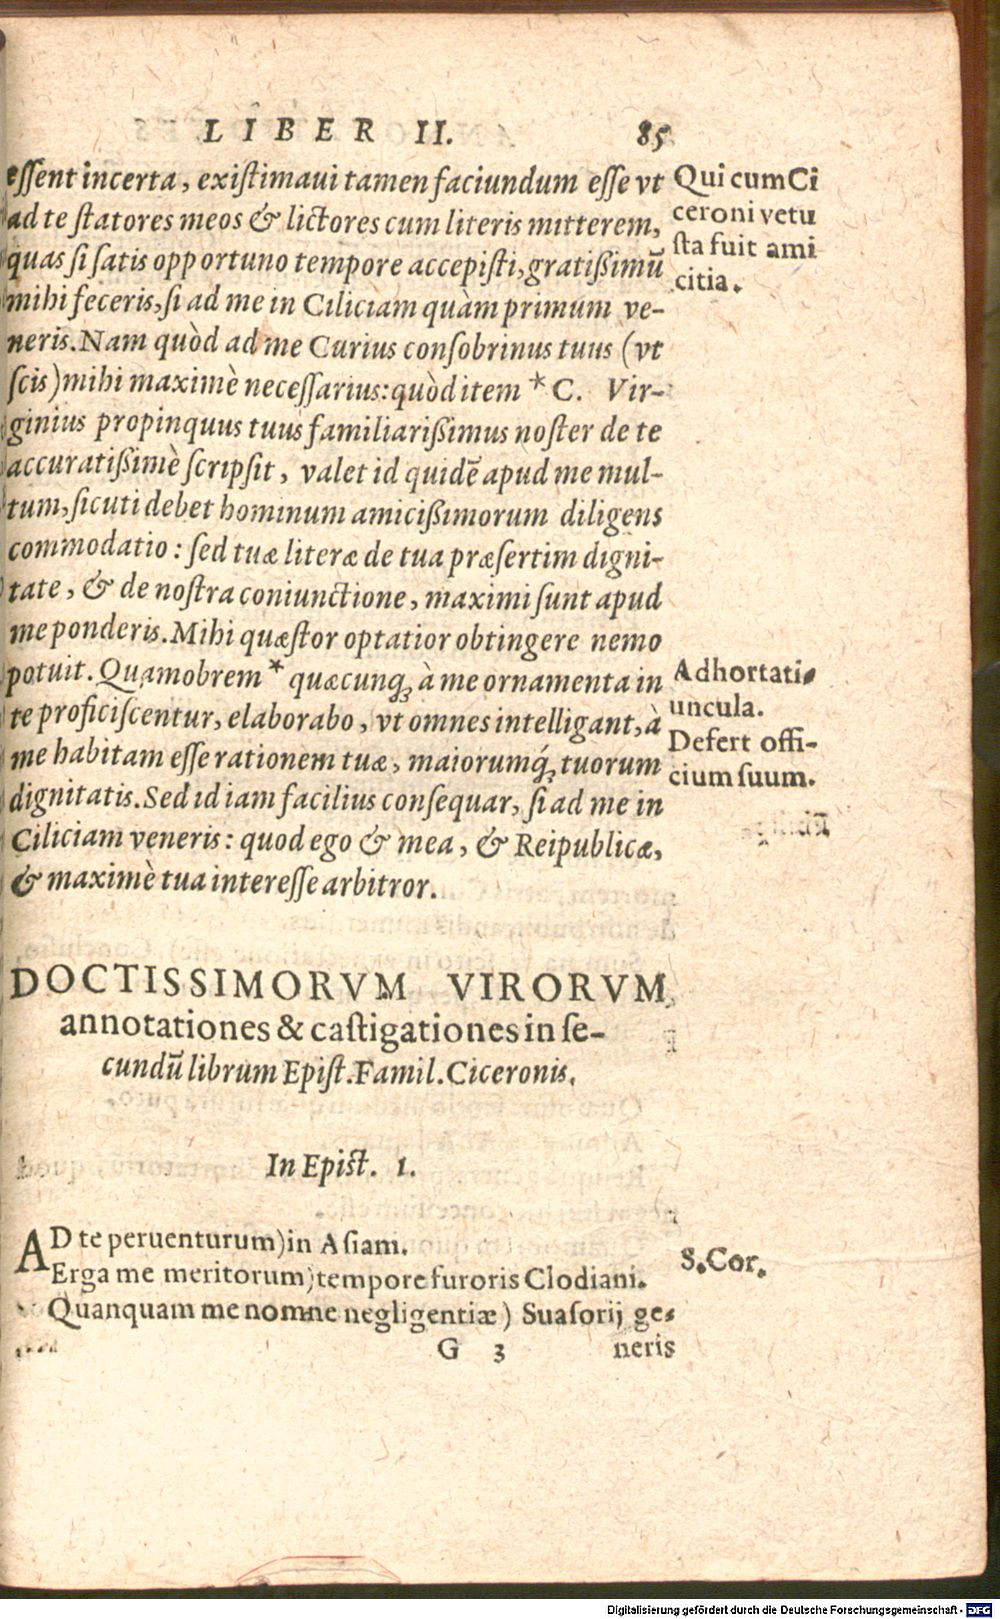 LIBER II. 85
eſſent incerta, exiſtimaui tamen faciundum eſſe vt
ad te ſtatores meos & lictores cum literis mitterem,
quas ſi ſatis opportuno tempore accepiſti, gratißimū
mihi feceris, ſi ad me in Ciliciam quàm primum ve-
neris. Nam quòd ad me Curius conſobrinus tuus (vt
ſcis) mihi maximè neceſſarius: quòd item * C. Vir-
ginius propinquus tuus familiarißimus noſter de te
accuratißimè ſcripſit, valet id quidē apud me mul-
tum, ſicuti debet hominum amicißimorum diligens
commodatio: ſed tuæ literæ de tua præſertim digni-
tate, & de noſtra coniunctione, maximi ſunt apud
me ponderis. Mihi quæſtor optatior obtingere nemo
potuit. Quamobrem * quæcunq; à me ornamenta in
te proficiſcentur, elaborabo, vt omnes intelligant, à
me habitam eſſe rationem tuæ, maiorumq́; tuorum
dignitatis. Sed id iam facilius conſequar, ſi ad me in
Ciliciam veneris: quod ego & mea, & Reipublicæ,
& maximè tua intereſſe arbitror.
Qui cum Ci
ceroni vetu
ſta fuit ami
citia.
Adhortati-
uncula.
Defert offi-
cium ſuum.
DOCTISSIMORVM VIRORVM
annotationes & caſtigationes in ſe-
cundū librum Epiſt. Famil. Ciceronis.
In Epiſt. 1.
AD te peruenturum) in Aſiam.
Erga me meritorum) tempore furoris Clodiani.
Quanquam me nomne negligentiæ) Suaſorij ge-
S. Cor.
G 3 neris
Digitalisierung gefördert durch die Deutsche Forschungsgemeinschaft - DFG